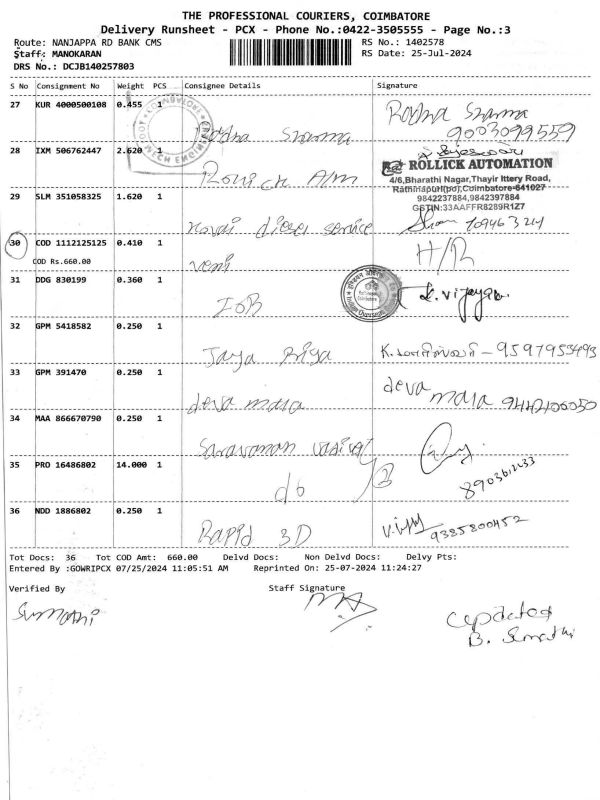 THE PROFESSIONAL COURIERS, COIMBATORE
Delivery Runsheet - PCX - Phone No.:0422-3505555 - Page No.:3
Route: NANJAPPA RD BANK CMS
RS No.: 1402578
Staff: MANOKARAN
RS Date: 25-Jul-2024
DRS No.: DCJB140257803
S No Consignment No Weight PCS Consignee Details Signature
27 KUR 4000500108 0.455 1
Radha Sharma
Radha Sharma
9003099559
28 IXM 506762447 2.620 1
ROLLICK AUTOMATION
4/6,Bharathi Nagar,Thayir Ittery Road,
Rathinapuri(po),Coimbatore-641027
9842237884,9842397884
GSTIN:33AAFFR8289R1Z7
29 SLM 351058325 1.620 1
Kovai diesel service
30 COD 1112125125 0.410 1
COD Rs.660.00
veni
H/R
31 DDG 830199 0.360 1
IOB
K. vijaya
32 GPM 5418582 0.250 1
Jaya Priya
9597953493
33 GPM 391470 0.250 1
deva mala
deva mala 9442106050
34 MAA 866670790 0.250 1
Saravanan
35 PRO 16486802 14.000 1
d6
36 NDD 1886802 0.250 1
Rapid 3D
9385800452
Tot Docs: 36 Tot COD Amt: 660.00 Delvd Docs: Non Delvd Docs: Delvy Pts:
Entered By :GOWRIPCX 07/25/2024 11:05:51 AM Reprinted On: 25-07-2024 11:24:27
Verified By Staff Signature
Sumathi
updated
B. Sumathi